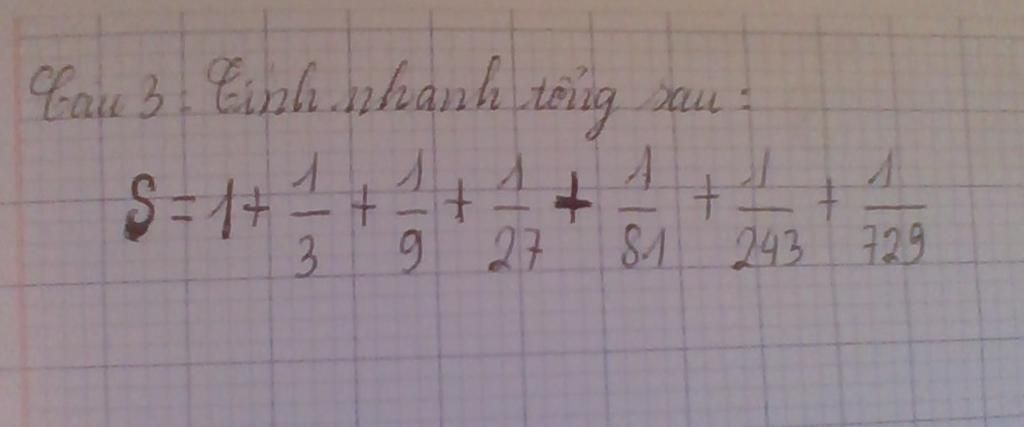 Câu 3: Tính nhanh tổng sau:
S = 1 + 1/3 + 1/9 + 1/27 + 1/81 + 1/243 + 1/729